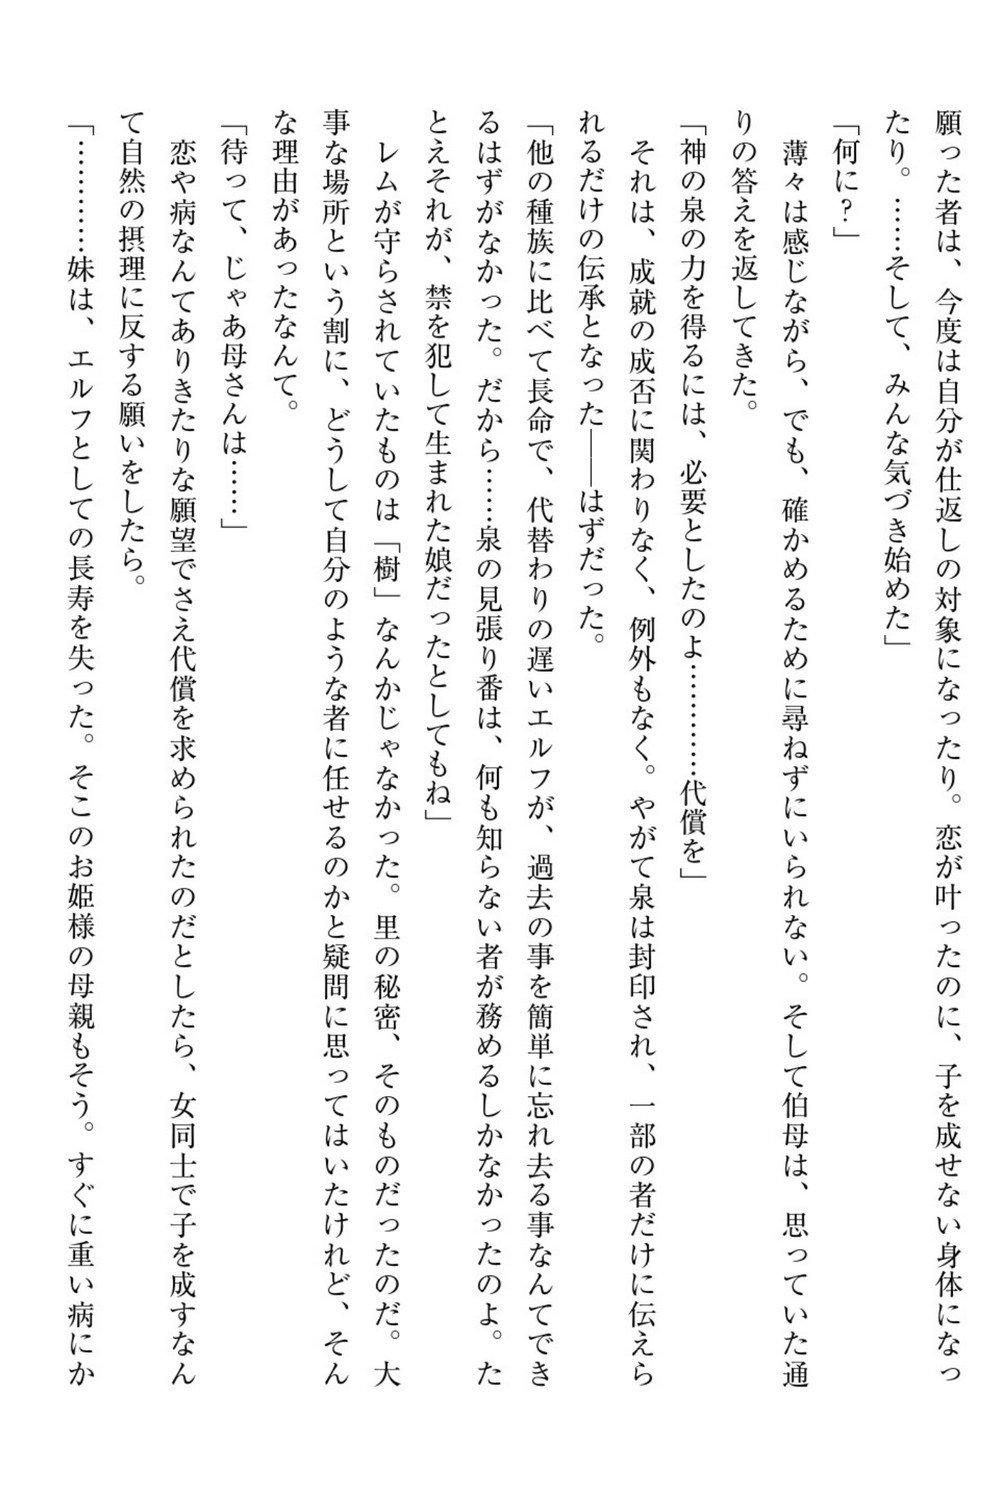 願った者は、今度は自分が仕返しの対象になったり。恋が叶ったのに、子を成せない身体になっ
たり。……そして、みんな気づき始めた」
「何に?」
　薄々は感じながら、でも、確かめるために尋ねずにいられない。そして伯母は、思っていた通
りの答えを返してきた。
「神の泉の力を得るには、必要としたのよ…………代償を」
　それは、成就の成否に関わりなく、例外もなく。やがて泉は封印され、一部の者だけに伝えら
れるだけの伝承となった――はずだった。
「他の種族に比べて長命で、代替わりの遅いエルフが、過去の事を簡単に忘れ去る事なんてでき
るはずがなかった。だから……泉の見張り番は、何も知らない者が務めるしかなかったのよ。た
とえそれが、禁を犯して生まれた娘だったとしてもね」
　レムが守らされていたものは「樹」なんかじゃなかった。里の秘密、そのものだったのだ。大
事な場所という割に、どうして自分のような者に任せるのかと疑問に思ってはいたけれど、そん
な理由があったなんて。
「待って、じゃあ母さんは……」
　恋や病なんてありきたりな願望でさえ代償を求められたのだとしたら、女同士で子を成すなん
て自然の摂理に反する願いをしたら。
「…………妹は、エルフとしての長寿を失った。そこのお姫様の母親もそう。すぐに重い病にか